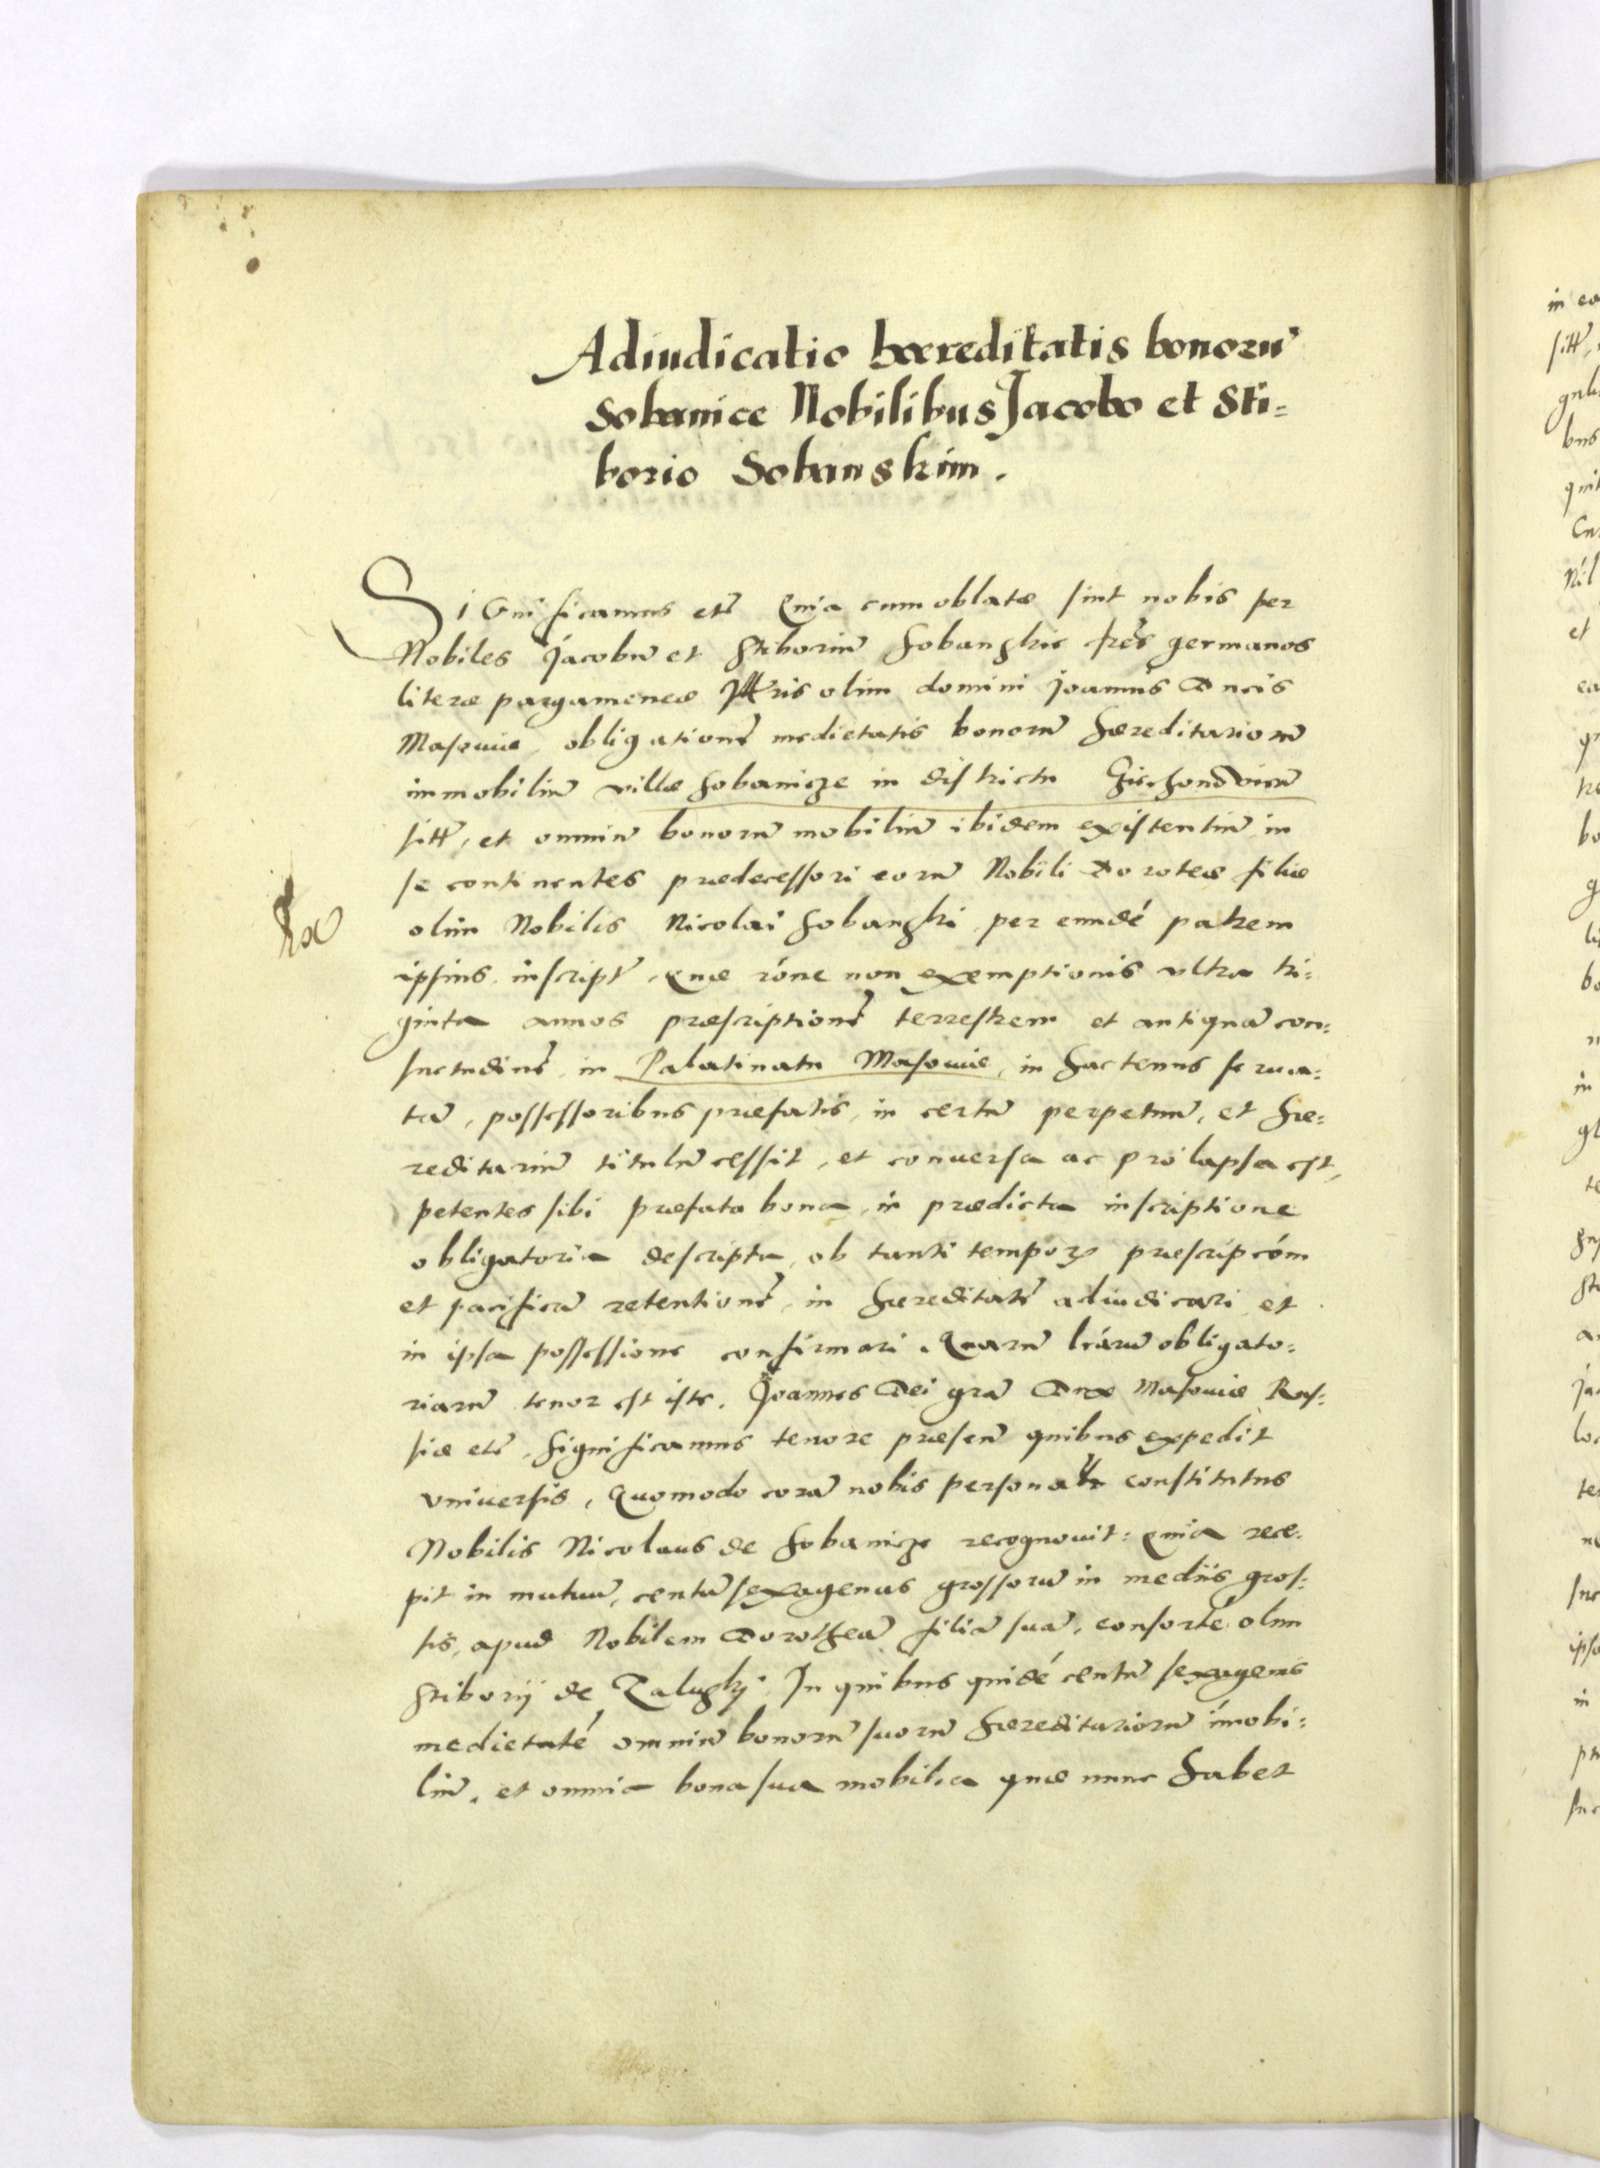 Adiudicatio haereditatis bonorū
Sobanice Nobilibus Jacobo et Sti=
borio Sobanskim.
Significamus etc̄ Quia cum oblatæ sint nobis per
Nobiles Jacobū et Stiboriū Sobansskie fr̄es germanos
literæ pargameneæ Ill̄ris olim domini Joannis Ducis
Masouiæ, obligationē medietatis bonorū hæreditariorū
immobiliū villæ Sobanicze in districtu
sitt̄, et omniū bonorū mobiliū ibidem existentiū in
se continentes prædecessori eorū Nobili Doroteæ filiæ
olim Nobilis Nicolai Sobansski per eundē patrem
ipsius inscript̄, Quæ rōne non exemptionis vltra tri=
ginta annos præscriptionē terrestrem et antiquā con=
suetudinē in Palatinatu Masouiæ, in hactenus serua=
tā, possessoribus præfatis, in certū perpetuū, et hæ=
reditariū titulū cessit, et conuersa ac prolapsa est,
petentes sibi præfata bona, in prædicta inscriptione
obligatoria descripta, ob tanti temporis præscripc̄om
et pacificā retentionē, in hæreditatē adiudicari et
in ipsa possessione confirmari. Quarū lr̄arū obligato=
riarū tenor est iste. Joannes Dei gr̄a Dux Masouiæ Rus=
siæ etc̄, Significamus tenore præsen̄ quibus expedit
vniuersis, Quomodo corā nobis personalr̄ constitutus
Nobilis Nicolaus de Sobanicze recognouit: Quia rece=
pit in mutuū, centū sexagenas grossorū in mediis gros=
sis, apud Nobilem Dorotheā filiā suā, consortē olim
Stiborij de Zalusskj. In quibus quidē centū sexagenis
medietatē omniū bonorū suorū hæreditariorū īmobi=
liū, et omnia bona sua mobilia quæ nunc habet